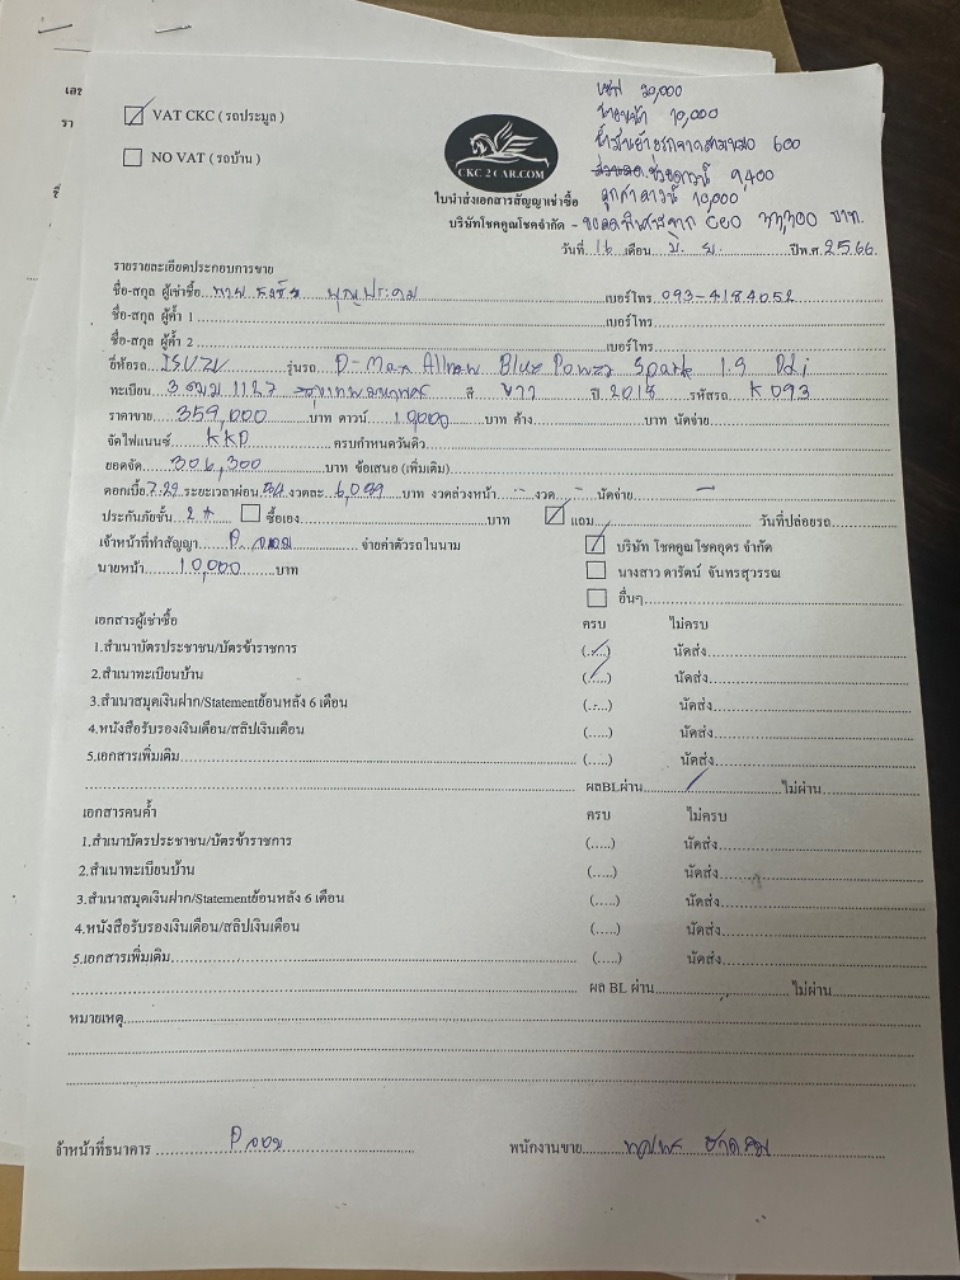 VAT CKC ( รถประมูล )
NO VAT ( รถบ้าน )
CKC 2 CAR.COM
20,000
นายหน้า 10,000
600
ช่วยดาวน์ 9,400
ลูกค้าดาวน์ 10,000
จาก CEO 33,300 บาท.
ใบนำส่งเอกสารสัญญาเช่าซื้อ
บริษัทโชคคูณโชคจำกัด
วันที่ 16 เดือน มิ.ย. ปีพ.ศ. 2566
รายรายละเอียดประกอบการขาย
ชื่อ-สกุล ผู้เช่าซื้อ นาย เบอร์โทร 093-4184052
ชื่อ-สกุล ผู้ค้ำ 1 เบอร์โทร
ชื่อ-สกุล ผู้ค้ำ 2 เบอร์โทร
ยี่ห้อรถ ISUZU รุ่นรถ D-Max Allnew Blue Power Spark 1.9 Ddi
ทะเบียน 3ฒม 1127 กรุงเทพมหานคร สี ขาว ปี 2018 รหัสรถ K093
ราคาขาย 359,000 บาท ดาวน์ บาท ค้าง บาท นัดจ่าย
จัดไฟแนนซ์ KKP ครบกำหนดวันคิว
ยอดจัด 306,300 บาท ข้อเสนอ (เพิ่มเติม)
ดอกเบี้ย 7.29 ระยะเวลาผ่อน งวดละ บาท งวดล่วงหน้า - งวด - นัดจ่าย -
ประกันภัยชั้น 2+ ซื้อเอง บาท แถม วันที่ปล่อยรถ
เจ้าหน้าที่ทำสัญญา จ่ายค่าตัวรถในนาม
บริษัท โชคคูณโชคอุดร จำกัด
นายหน้า 10,000 บาท
นางสาว ดารัตน์ จันทรสุวรรณ
อื่นๆ
เอกสารผู้เช่าซื้อ ครบ ไม่ครบ
1.สำเนาบัตรประชาชน/บัตรข้าราชการ (.....) นัดส่ง
2.สำเนาทะเบียนบ้าน (.....) นัดส่ง
3.สำเนาสมุดเงินฝาก/Statementย้อนหลัง 6 เดือน (.....) นัดส่ง
4.หนังสือรับรองเงินเดือน/สลิปเงินเดือน (.....) นัดส่ง
5.เอกสารเพิ่มเติม (.....) นัดส่ง
ผลBLผ่าน ไม่ผ่าน
เอกสารคนค้ำ ครบ ไม่ครบ
1.สำเนาบัตรประชาชน/บัตรข้าราชการ (.....) นัดส่ง
2.สำเนาทะเบียนบ้าน (.....) นัดส่ง
3.สำเนาสมุดเงินฝาก/Statementย้อนหลัง 6 เดือน (.....) นัดส่ง
4.หนังสือรับรองเงินเดือน/สลิปเงินเดือน (.....) นัดส่ง
5.เอกสารเพิ่มเติม (.....) นัดส่ง
ผล BL ผ่าน ไม่ผ่าน
หมายเหตุ
จ้าหน้าที่ธนาคาร
พนักงานขาย